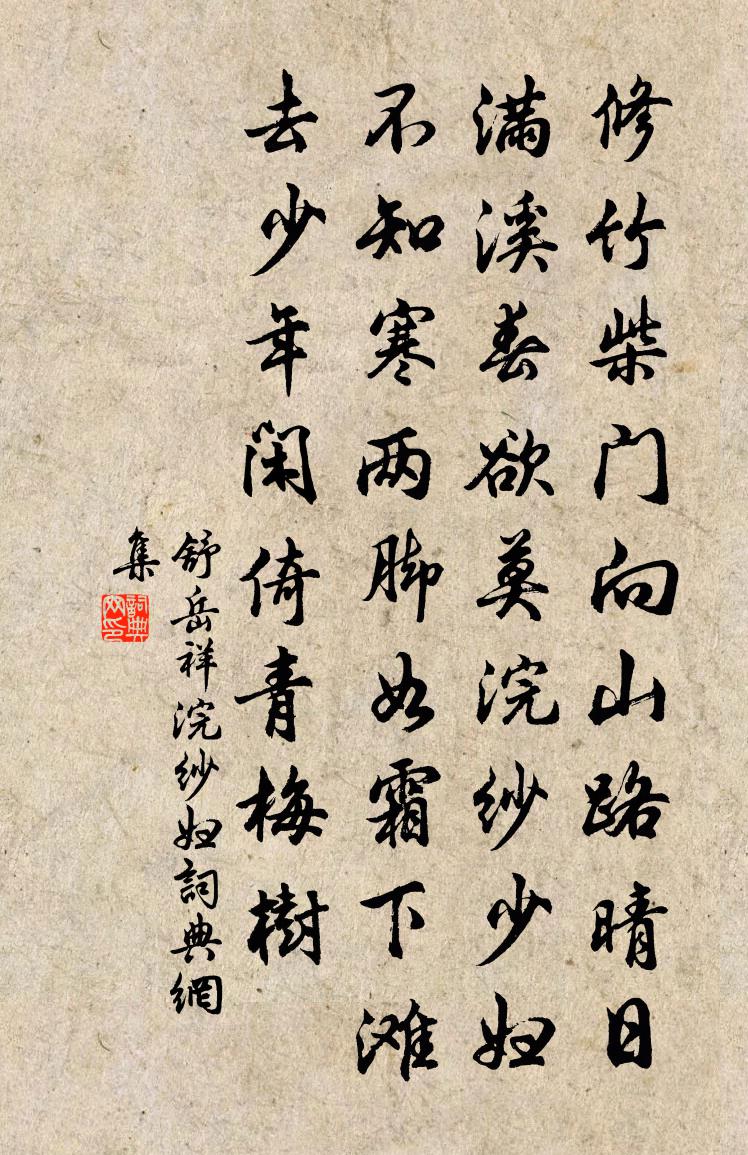 修竹柴门向山路晴日
満溪春欲莫浣纱少妇
不知寒两脚如霜下滩
去少年闲倚青梅樹
舒岳祥浣纱妇詞典網
集
詞典网印